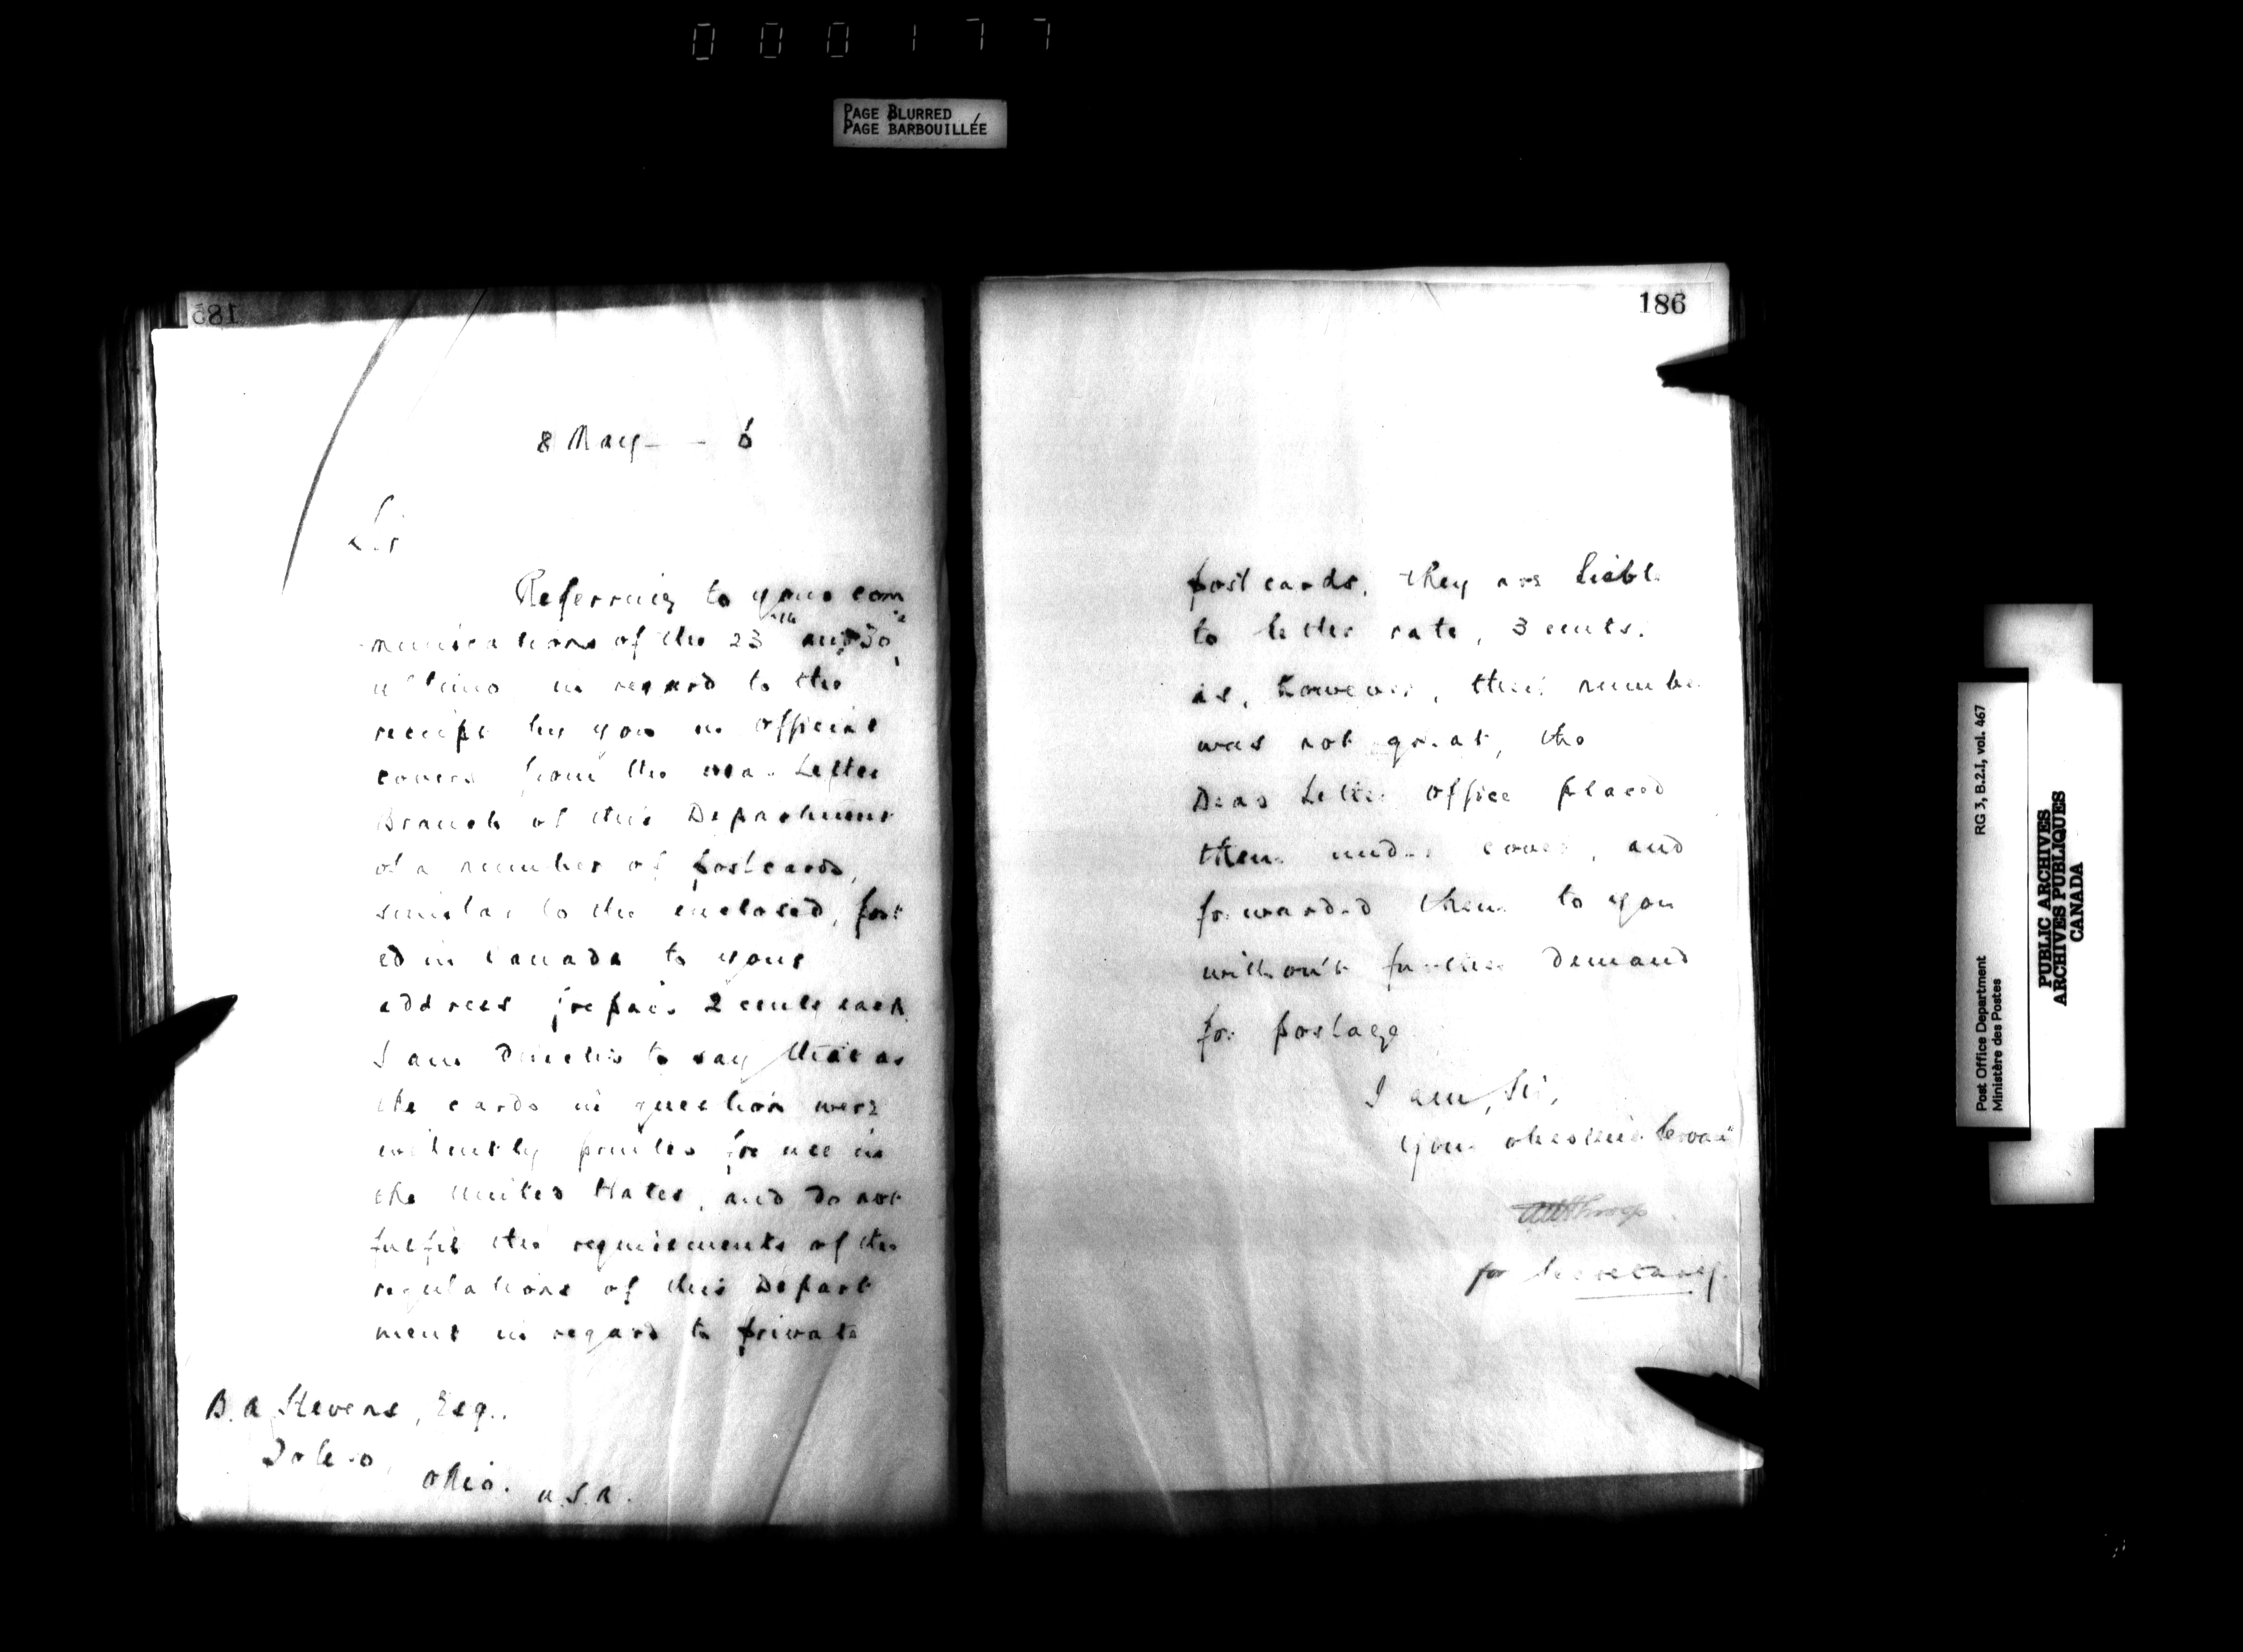 000177
PAGE BLURRED
PAGE BARBOUILLÉE
185
8 May - - 6
Sir
Referring to your com
-munications of the 23rd and 30th
ultimo in regard to the
receipt by you in official
covers from the Dead Letter
Branch of this Department
of a number of postcards,
similar to the enclosed, post
ed in Canada to your
address prepaid 2 cents each
I am directed to say that as
the cards in question were
evidently printed for use in
the United States, and do not
fulfil the requirements of the
regulations of this Depart
ment in regard to private
B. A. Stevens, Esq.,
Toledo,
Ohio. U.S.A.
186
post cards, they are liable
to letter rate, 3 cents.
As, however, their number
was not great, the
Dead Letter Office placed
them under cover, and
forwarded them to you
without further demand
for postage
I am, Sir,
Your obedient Servant
for Secretary.
Post Office Department
Ministère des Postes
RG 3, B.2.I, vol. 467
PUBLIC ARCHIVES
ARCHIVES PUBLIQUES
CANADA